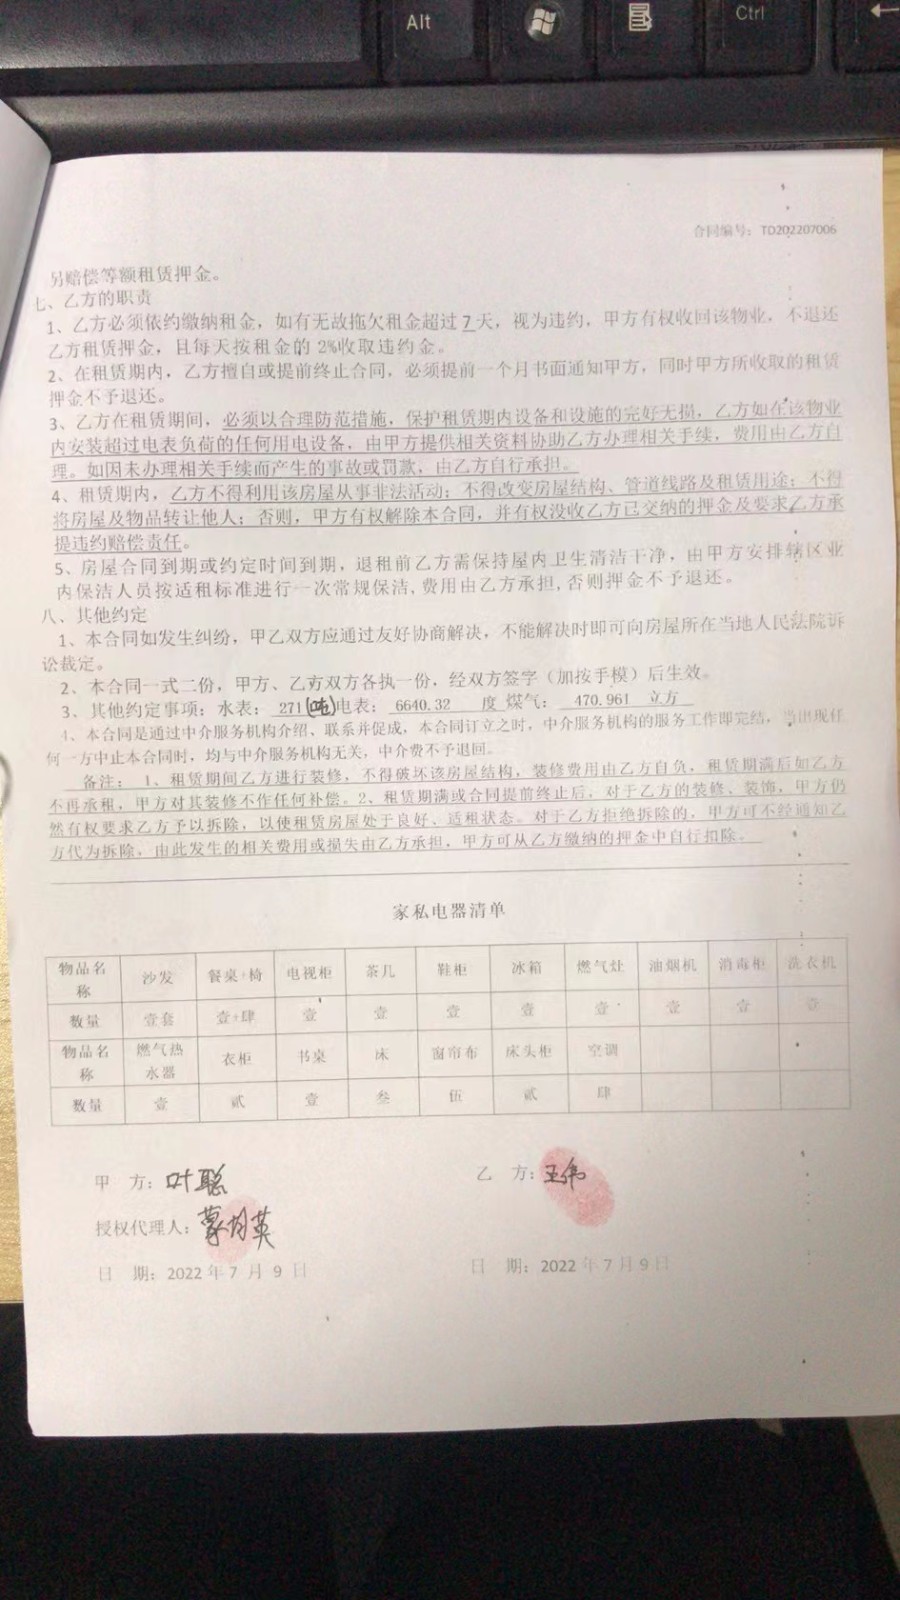 Alt
Ctrl
合同编号：TD202207006
另赔偿等额租赁押金。
七、乙方的职责
1、乙方必须依约缴纳租金，如有无故拖欠租金超过7天，视为违约，甲方有权收回该物业，不退还
乙方租赁押金，且每天按租金的 2%收取违约金。
2、在租赁期内，乙方擅自或提前终止合同，必须提前一个月书面通知甲方，同时甲方所收取的租赁
押金不予退还。
3、乙方在租赁期间，必须以合理防范措施，保护租赁期内设备和设施的完好无损，乙方如在该物业
内安装超过电表负荷的任何用电设备，由甲方提供相关资料协助乙方办理相关手续，费用由乙方自
理。如因未办理相关手续而产生的事故或罚款，由乙方自行承担。
4、租赁期内，乙方不得利用该房屋从事非法活动；不得改变房屋结构、管道线路及租赁用途；不得
将房屋及物品转让他人；否则，甲方有权解除本合同，并有权没收乙方已交纳的押金及要求乙方承
提违约赔偿责任。
5、房屋合同到期或约定时间到期，退租前乙方需保持屋内卫生清洁干净，由甲方安排辖区业
内保洁人员按适租标准进行一次常规保洁,费用由乙方承担,否则押金不予退还。
八、其他约定
1、本合同如发生纠纷，甲乙双方应通过友好协商解决，不能解决时即可向房屋所在当地人民法院诉
讼裁定。
2、本合同一式二份，甲方、乙方双方各执一份，经双方签字（加按手模）后生效。
3、其他约定事项：水表： 271(吨)电表： 6640.32 度 煤气： 470.961 立方
4、本合同是通过中介服务机构介绍、联系并促成，本合同订立之时，中介服务机构的服务工作即完结，当出现任
何一方中止本合同时，均与中介服务机构无关，中介费不予退回。
备注： 1、租赁期间乙方进行装修，不得破坏该房屋结构，装修费用由乙方自负，租赁期满后如乙方
不再承租，甲方对其装修不作任何补偿。2、租赁期满或合同提前终止后，对于乙方的装修、装饰，甲方仍
然有权要求乙方予以拆除，以使租赁房屋处于良好、适租状态。对于乙方拒绝拆除的，甲方可不经通知乙
方代为拆除，由此发生的相关费用或损失由乙方承担，甲方可从乙方缴纳的押金中自行扣除。
家私电器清单
物品名称 沙发 餐桌+椅 电视柜 茶几 鞋柜 冰箱 燃气灶 油烟机 消毒柜 洗衣机
数量 壹套 壹+肆 壹 壹 壹 壹 壹 壹 壹 壹
物品名称 燃气热水器 衣柜 书桌 床 窗帘布 床头柜 空调
数量 壹 贰 壹 叁 伍 贰 肆
甲 方：叶聪 乙 方：王伟
授权代理人：蒙月英
日 期：2022 年 7 月 9 日 日 期：2022 年 7 月 9 日